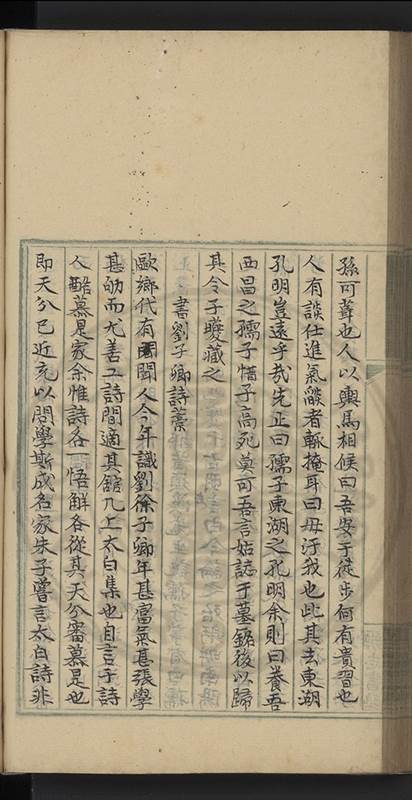 孫可葺也人以輿馬相候曰吾安于徒步何有貴習也
人有談仕進氣燄者輒掩耳曰毋汙我也此其去東湖
孔明豈遠乎哉先正曰孺子東湖之孔明余則曰養吾
西昌之孺子惜子高死莫可吾言姑誌于墓銘後以歸
其令子夔藏之
書劉子卿詩藁
歐鄉代有聞人今年識劉徐子卿年甚富氣甚張學
甚劬而尤善工詩間適其舘几上太白集也自言于詩
人酷慕是家余惟詩各一悟解各從其天分審慕是也
即天分已近充以問學斯成名家朱子嘗言太白詩非